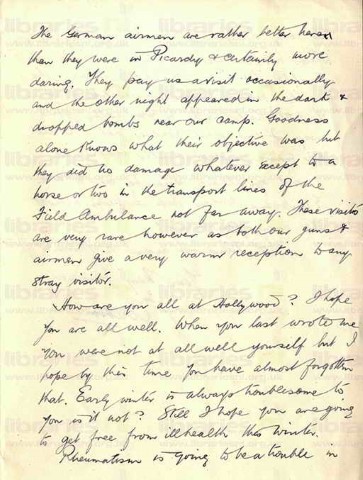 The German airmen are rather better here
than they were in Picardy & certainly more
daring. They pay us a visit occasionally
and the other night appeared in the dark &
dropped bombs near our camp. Goodness
alone knows what their objective was but
they did no damage whatever except to a
horse or two in the transport lines of the
Field Ambulance not far away. These visits
are very rare however as both our guns &
airmen give a very warm reception to any
stray visitor.
How are you all at Hollywood? I hope
you are all well. When you last wrote me
you were not at all well yourself but I
hope by this time you have almost forgotten
that. Early winter is always troublesome to
you is it not? Still I hope you are going
to get free from ill health this winter.
Rheumatism is going to be a trouble in